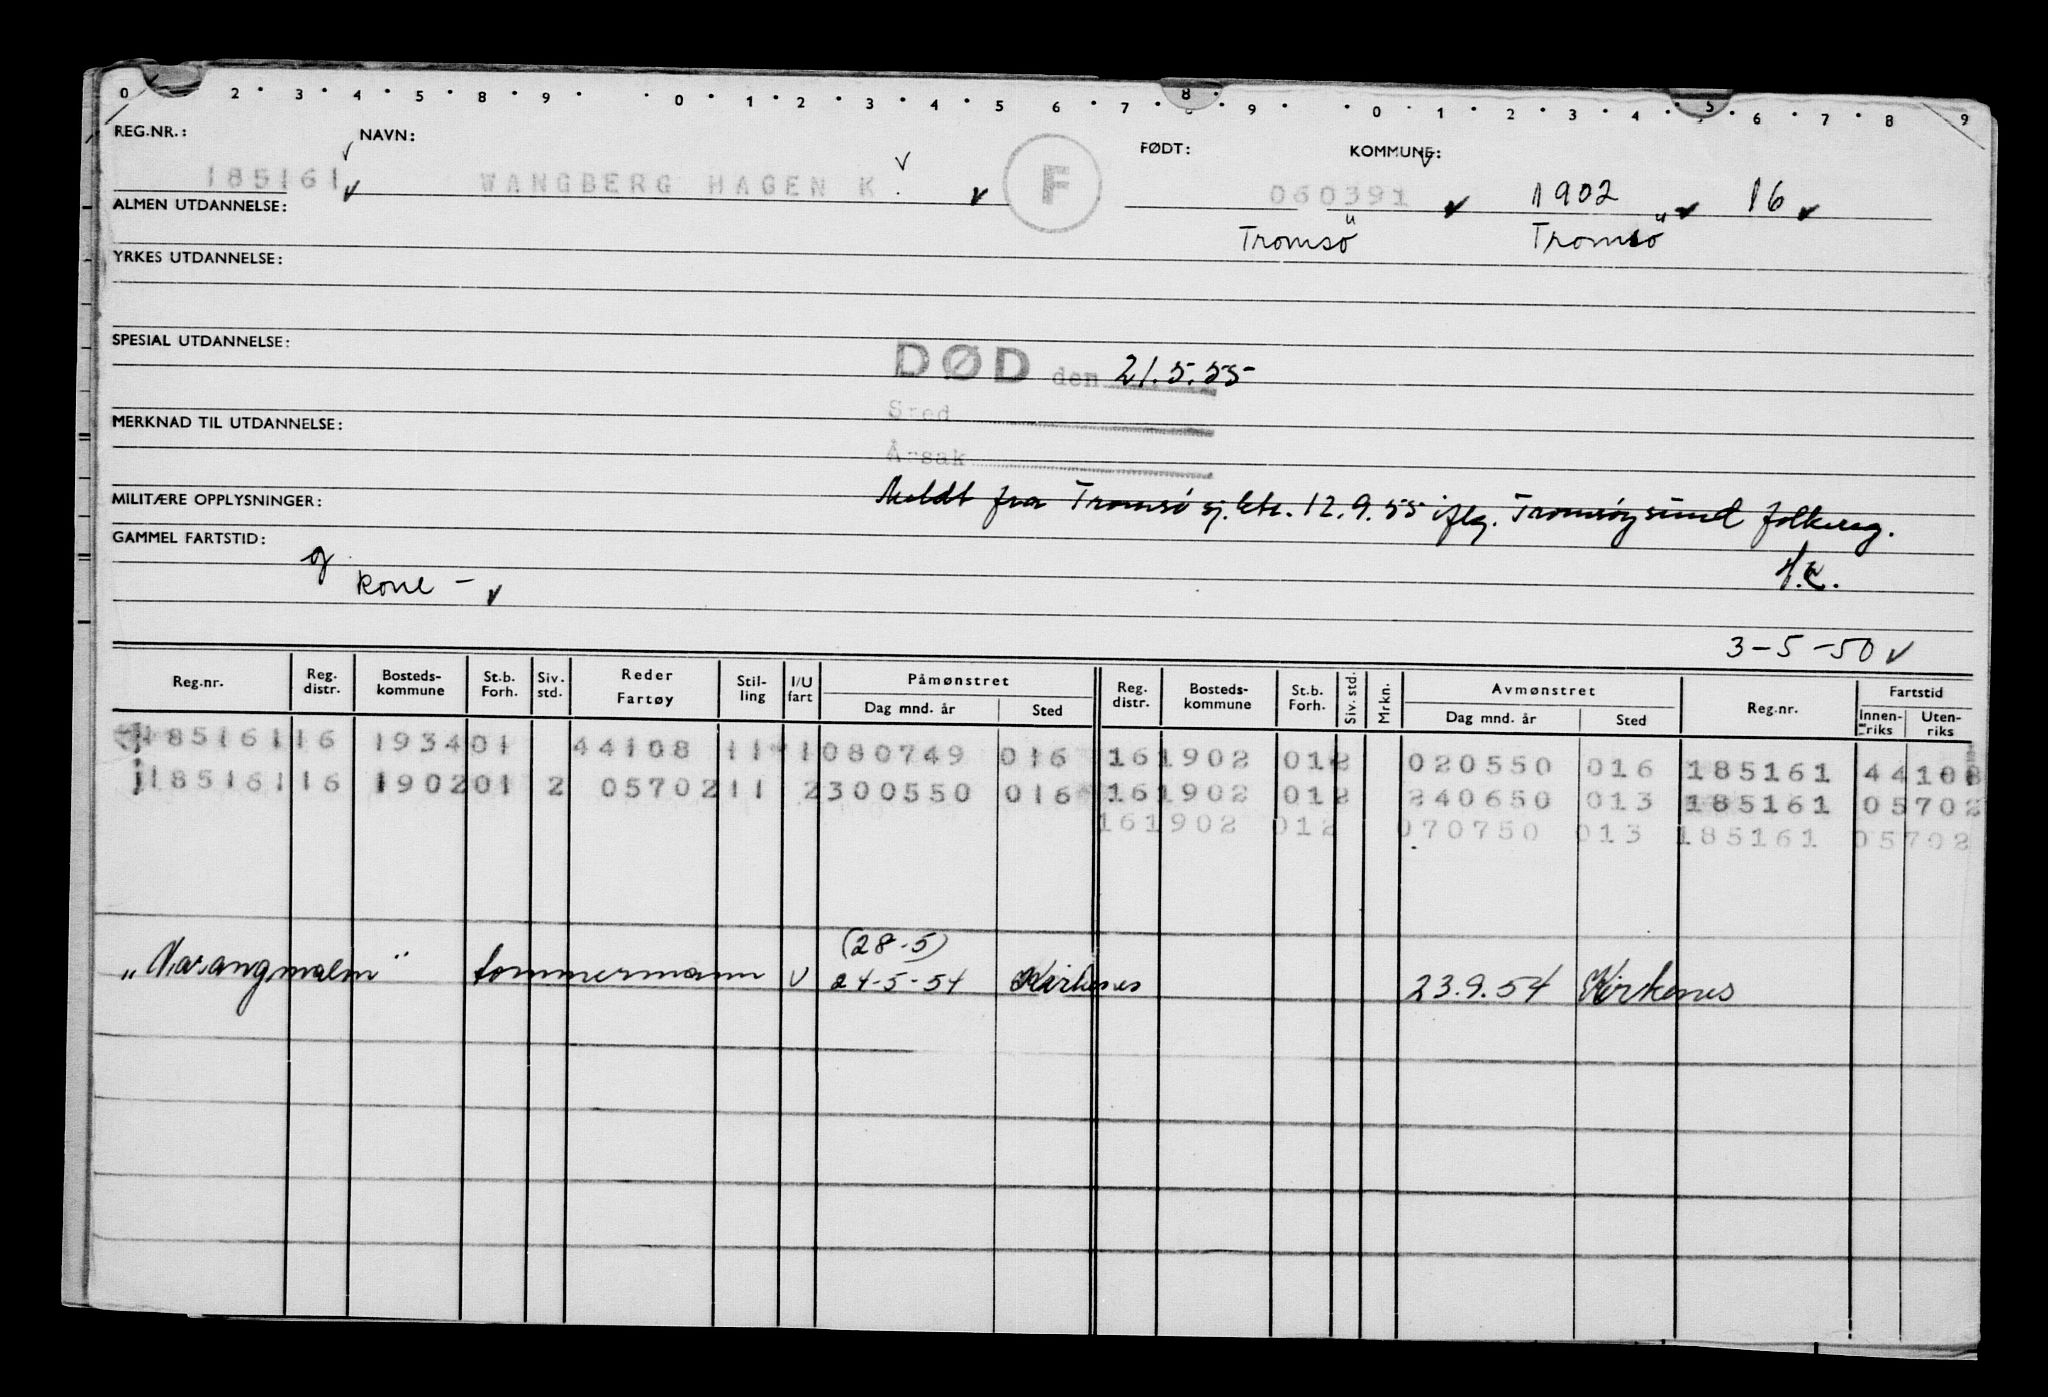 0 2 · 3 · 4 · 5 · 8 · 9 · · 0 · 1 · 2 · 3 · 4 · 5 6 · 7 · 8 · 9 · · 0 · 1 · 2 · 3 · 4 · 5 · 6 · 7 · 8 9
REG.NR.: NAVN: FØDT: KOMMUNE:
185161 WANGBERG HAGEN K. F 060391 1902 16
ALMEN UTDANNELSE:
Tromsö Tromsö
YRKES UTDANNELSE:
SPESIAL UTDANNELSE:
DØD den 21.5.55
Sted
MERKNAD TIL UTDANNELSE:
Årsak
MILITÆRE OPPLYSNINGER:
Meldt fra Tromsö sj. ktr. 12.9.55 iflg. Tromsöysund folkereg.
GAMMEL FARTSTID:
g
kone -
3-5-50
Reg.nr. Reg. distr. Bosteds-kommune St.b. Forh. Siv. std. Reder Fartøy Stil-ling I/U fart Påmønstret Dag mnd. år Sted Reg. distr. Bosteds-kommune St.b. Forh. Siv. std. Mrkn. Avmønstret Dag mnd. år Sted Reg.nr. Fartstid Innen-riks Uten-riks
185161 16 1934 01 44108 11 1 080749 016 16 1902 01 2 020550 016 185161 44108
185161 16 1902 01 2 05702 11 2 300550 016 16 1902 01 2 240650 013 185161 05702
16 1902 01 2 070750 013 185161 05702
(28-5)
"Varangmalm" tømmermann U 24-5-54 Kirkenes 23.9.54 Kirkenes